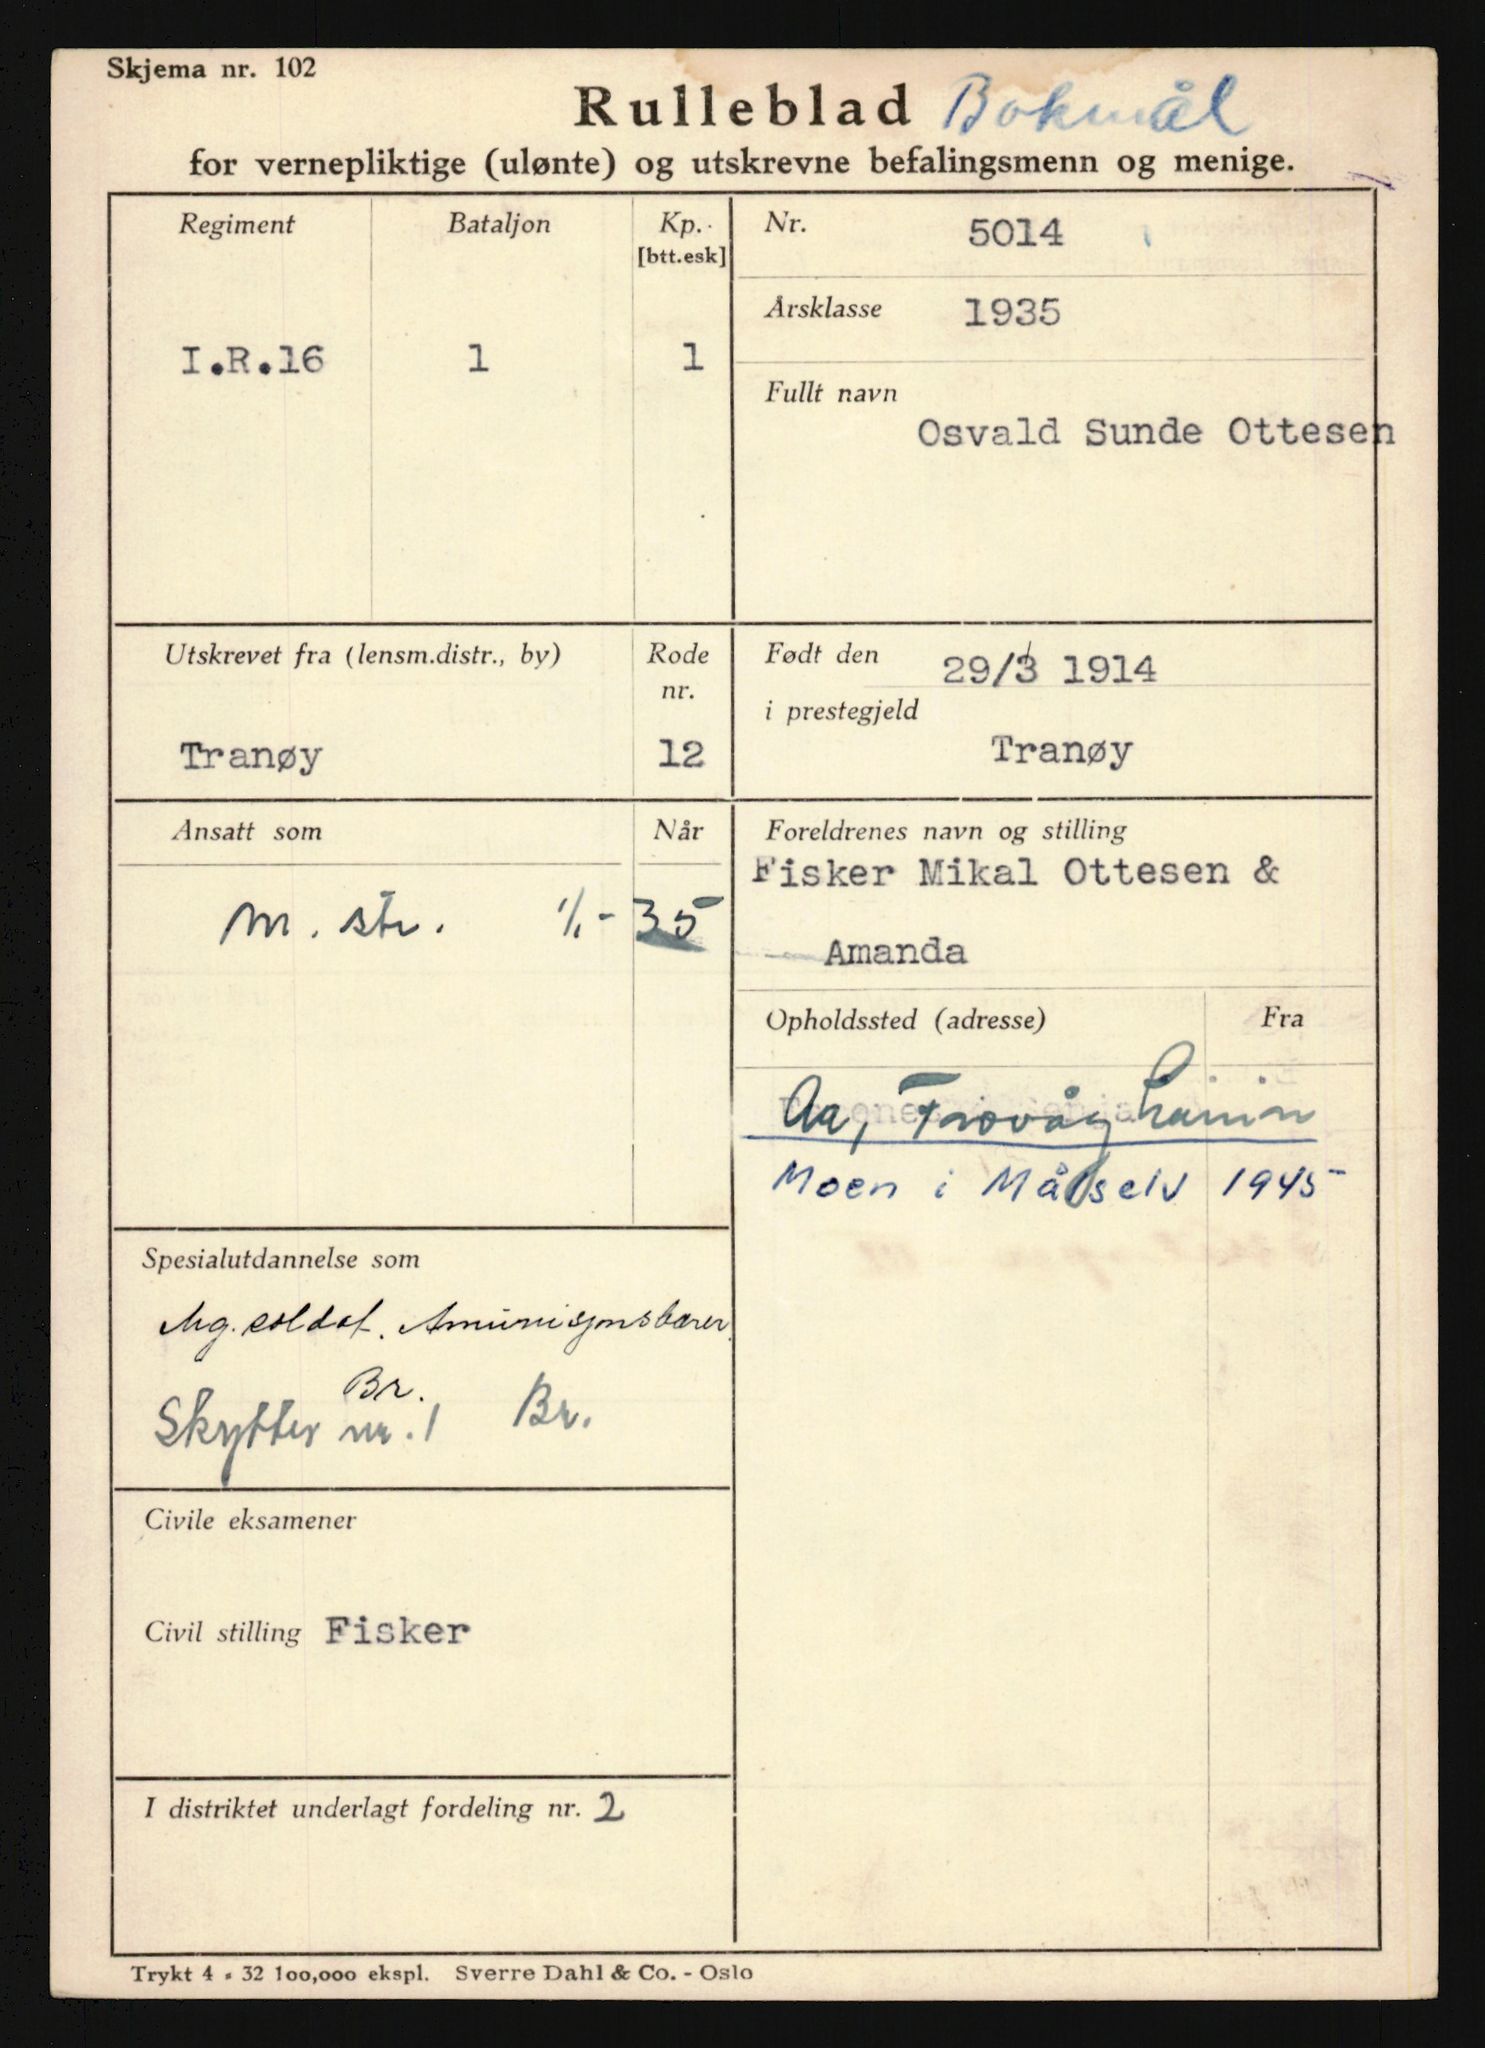 Skjema nr. 102
Rulleblad Bokmål
for vernepliktige (ulønte) og utskrevne befalingsmenn og menige.
Regiment Bataljon Kp.
[btt.esk]
I.R.16 1 1
Nr. 5014
Årsklasse 1935
Fullt navn
Osvald Sunde Ottesen
Utskrevet fra (lensm.distr., by) Rode
nr.
Tranøy 12
Født den 29/3 1914
i prestegjeld
Tranøy
Ansatt som Når
m. str. 1/1 - 35
Foreldrenes navn og stilling
Fisker Mikal Ottesen &
Amanda
Opholdssted (adresse) Fra
Aa, Frovåg
Moen i Målselv 1945
Spesialutdannelse som
Mg. soldat. Amunisjonsbærer
Br.
Skytter nr. 1 Br.
Civile eksamener
Civil stilling Fisker
I distriktet underlagt fordeling nr. 2
Trykt 4 - 32 100,000 ekspl. Sverre Dahl & Co. - Oslo